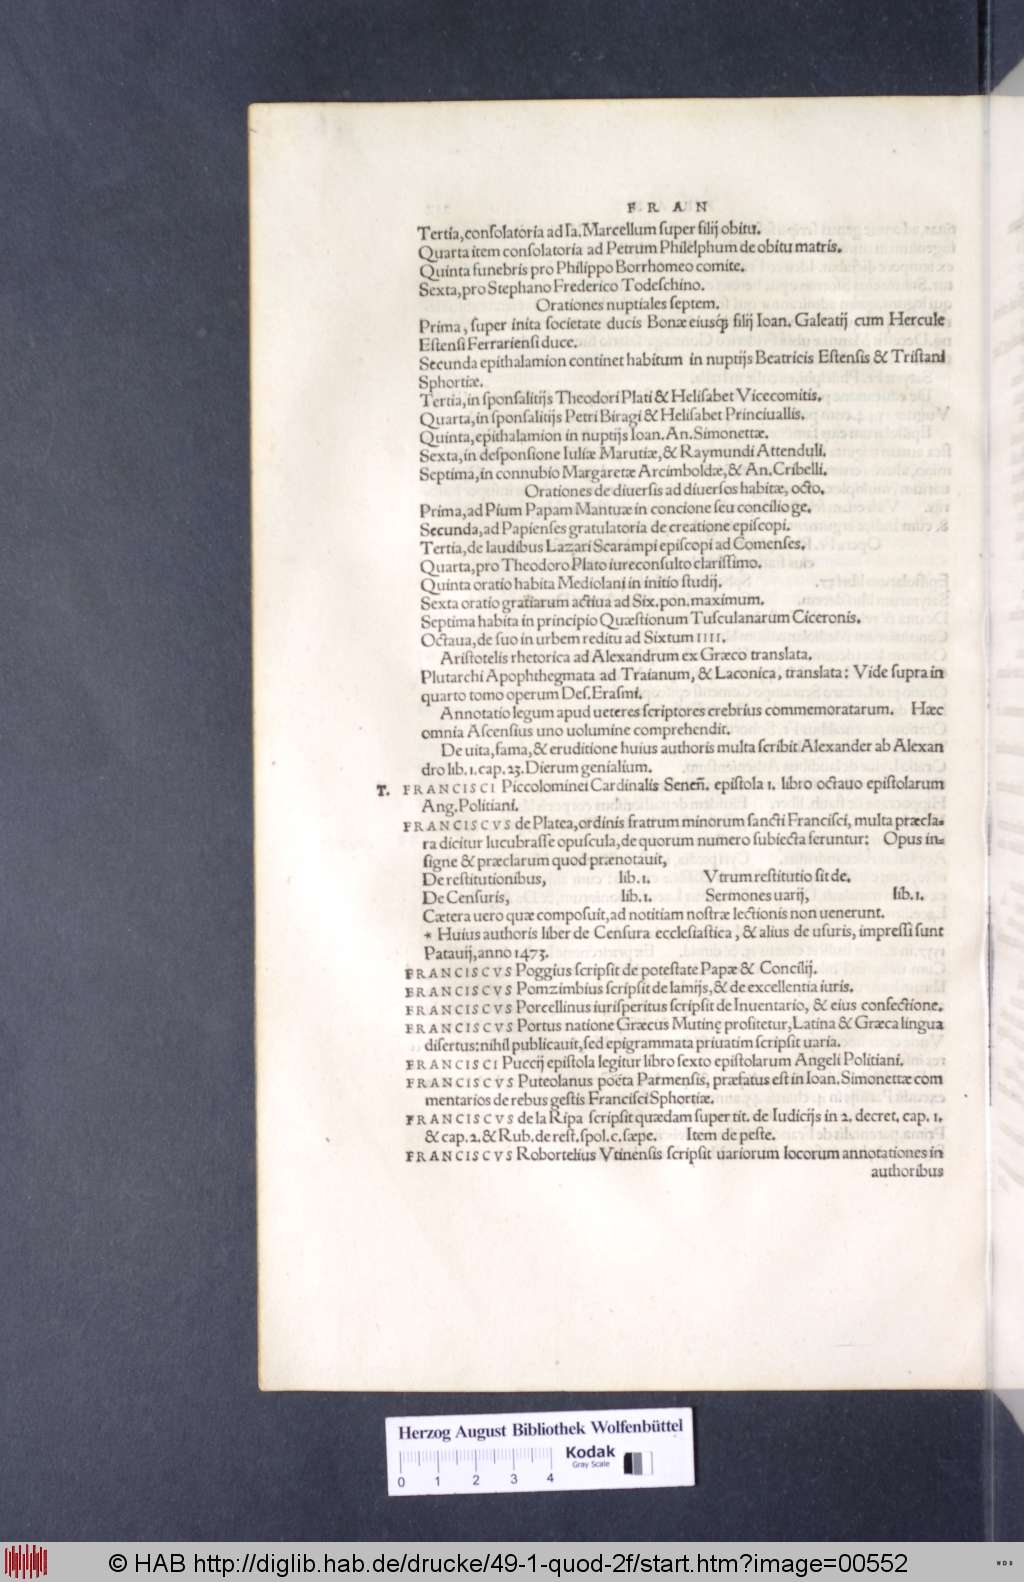 F R A N
Tertia, conſolatoria ad Ia. Marcellum ſuper filij obitu.
Quarta item conſolatoria ad Petrum Philelphum de obitu matris.
Quinta funebris pro Philippo Borrhomeo comite.
Sexta, pro Stephano Frederico Todeſchino.
Orationes nuptiales ſeptem.
Prima, ſuper inita ſocietate ducis Bonæ eiusq́; filij Ioan. Galeatij cum Hercule
Eſtenſi Ferrarienſi duce.
Secunda epithalamion continet habitum in nuptijs Beatricis Eſtenſis & Triſtani
Sphortiæ.
Tertia, in ſponſalitijs Theodori Plati & Heliſabet Vicecomitis.
Quarta, in ſponſalitijs Petri Biragi & Heliſabet Princiuallis.
Quinta, epithalamion in nuptijs Ioan. An. Simonettæ.
Sexta, in deſponſione Iuliæ Marutiæ, & Raymundi Attenduli.
Septima, in connubio Margaretæ Arcimboldæ, & An. Cribelli.
Orationes de diuerſis ad diuerſos habitæ, octo.
Prima, ad Pium Papam Mantuæ in concione ſeu concilio ge.
Secunda, ad Papienſes gratulatoria de creatione epiſcopi.
Tertia, de laudibus Lazari Scarampi epiſcopi ad Comenſes.
Quarta, pro Theodoro Plato iureconſulto clariſſimo.
Quinta oratio habita Mediolani in initio ſtudij.
Sexta oratio gratiarum actiua ad Six. pon. maximum.
Septima habita in principio Quæſtionum Tuſculanarum Ciceronis.
Octaua, de ſuo in urbem reditu ad Sixtum IIII.
Ariſtotelis rhetorica ad Alexandrum ex Græco translata.
Plutarchi Apophthegmata ad Traianum, & Laconica, translata: Vide ſupra in
quarto tomo operum Deſ. Eraſmi.
Annotatio legum apud ueteres ſcriptores crebrius commemoratarum. Hæc
omnia Aſcenſius uno uolumine comprehendit.
De uita, fama, & eruditione huius authoris multa ſcribit Alexander ab Alexan
dro lib. 1. cap. 23. Dierum genialium.
T. FRANCISCI Piccolominei Cardinalis Seneñ. epiſtola 1. libro octauo epiſtolarum
Ang. Politiani.
FRANCISCVS de Platea, ordinis fratrum minorum ſancti Franciſci, multa præcla-
ra dicitur lucubraſſe opuſcula, de quorum numero ſubiecta feruntur: Opus in-
ſigne & præclarum quod prænotauit,
De reſtitutionibus, lib. 1. Vtrum reſtitutio ſit de,
De Cenſuris, lib. 1. Sermones uarij, lib. 1.
Cætera uero quæ compoſuit, ad notitiam noſtræ lectionis non uenerunt.
* Huius authoris liber de Cenſura eccleſiaſtica, & alius de uſuris, impreſſi ſunt
Patauij, anno 1473.
FRANCISCVS Poggius ſcripſit de poteſtate Papæ & Concilij.
FRANCISCVS Pomzimbius ſcripſit de lamijs, & de excellentia iuris.
FRANCISCVS Porcellinus iuriſperitus ſcripſit de Inuentario, & eius confectione.
FRANCISCVS Portus natione Græcus Mutinę profitetur, Latina & Græca lingua
diſertus: nihil publicauit, ſed epigrammata priuatim ſcripſit uaria.
FRANCISCI Puccij epiſtola legitur libro ſexto epiſtolarum Angeli Politiani.
FRANCISCVS Puteolanus poëta Parmenſis, præfatus eſt in Ioan. Simonettæ com
mentarios de rebus geſtis Franciſci Sphortiæ.
FRANCISCVS de la Ripa ſcripſit quædam ſuper tit. de Iudicijs in 2. decret. cap. 1.
& cap. 2. & Rub. de reſt. ſpol. c. ſæpe. Item de peſte.
FRANCISCVS Robortelius Vtinenſis ſcripſit uariorum locorum annotationes in
authoribus
Herzog August Bibliothek Wolfenbüttel
Kodak
Gray Scale
0 1 2 3 4
© HAB http://diglib.hab.de/drucke/49-1-quod-2f/start.htm?image=00552